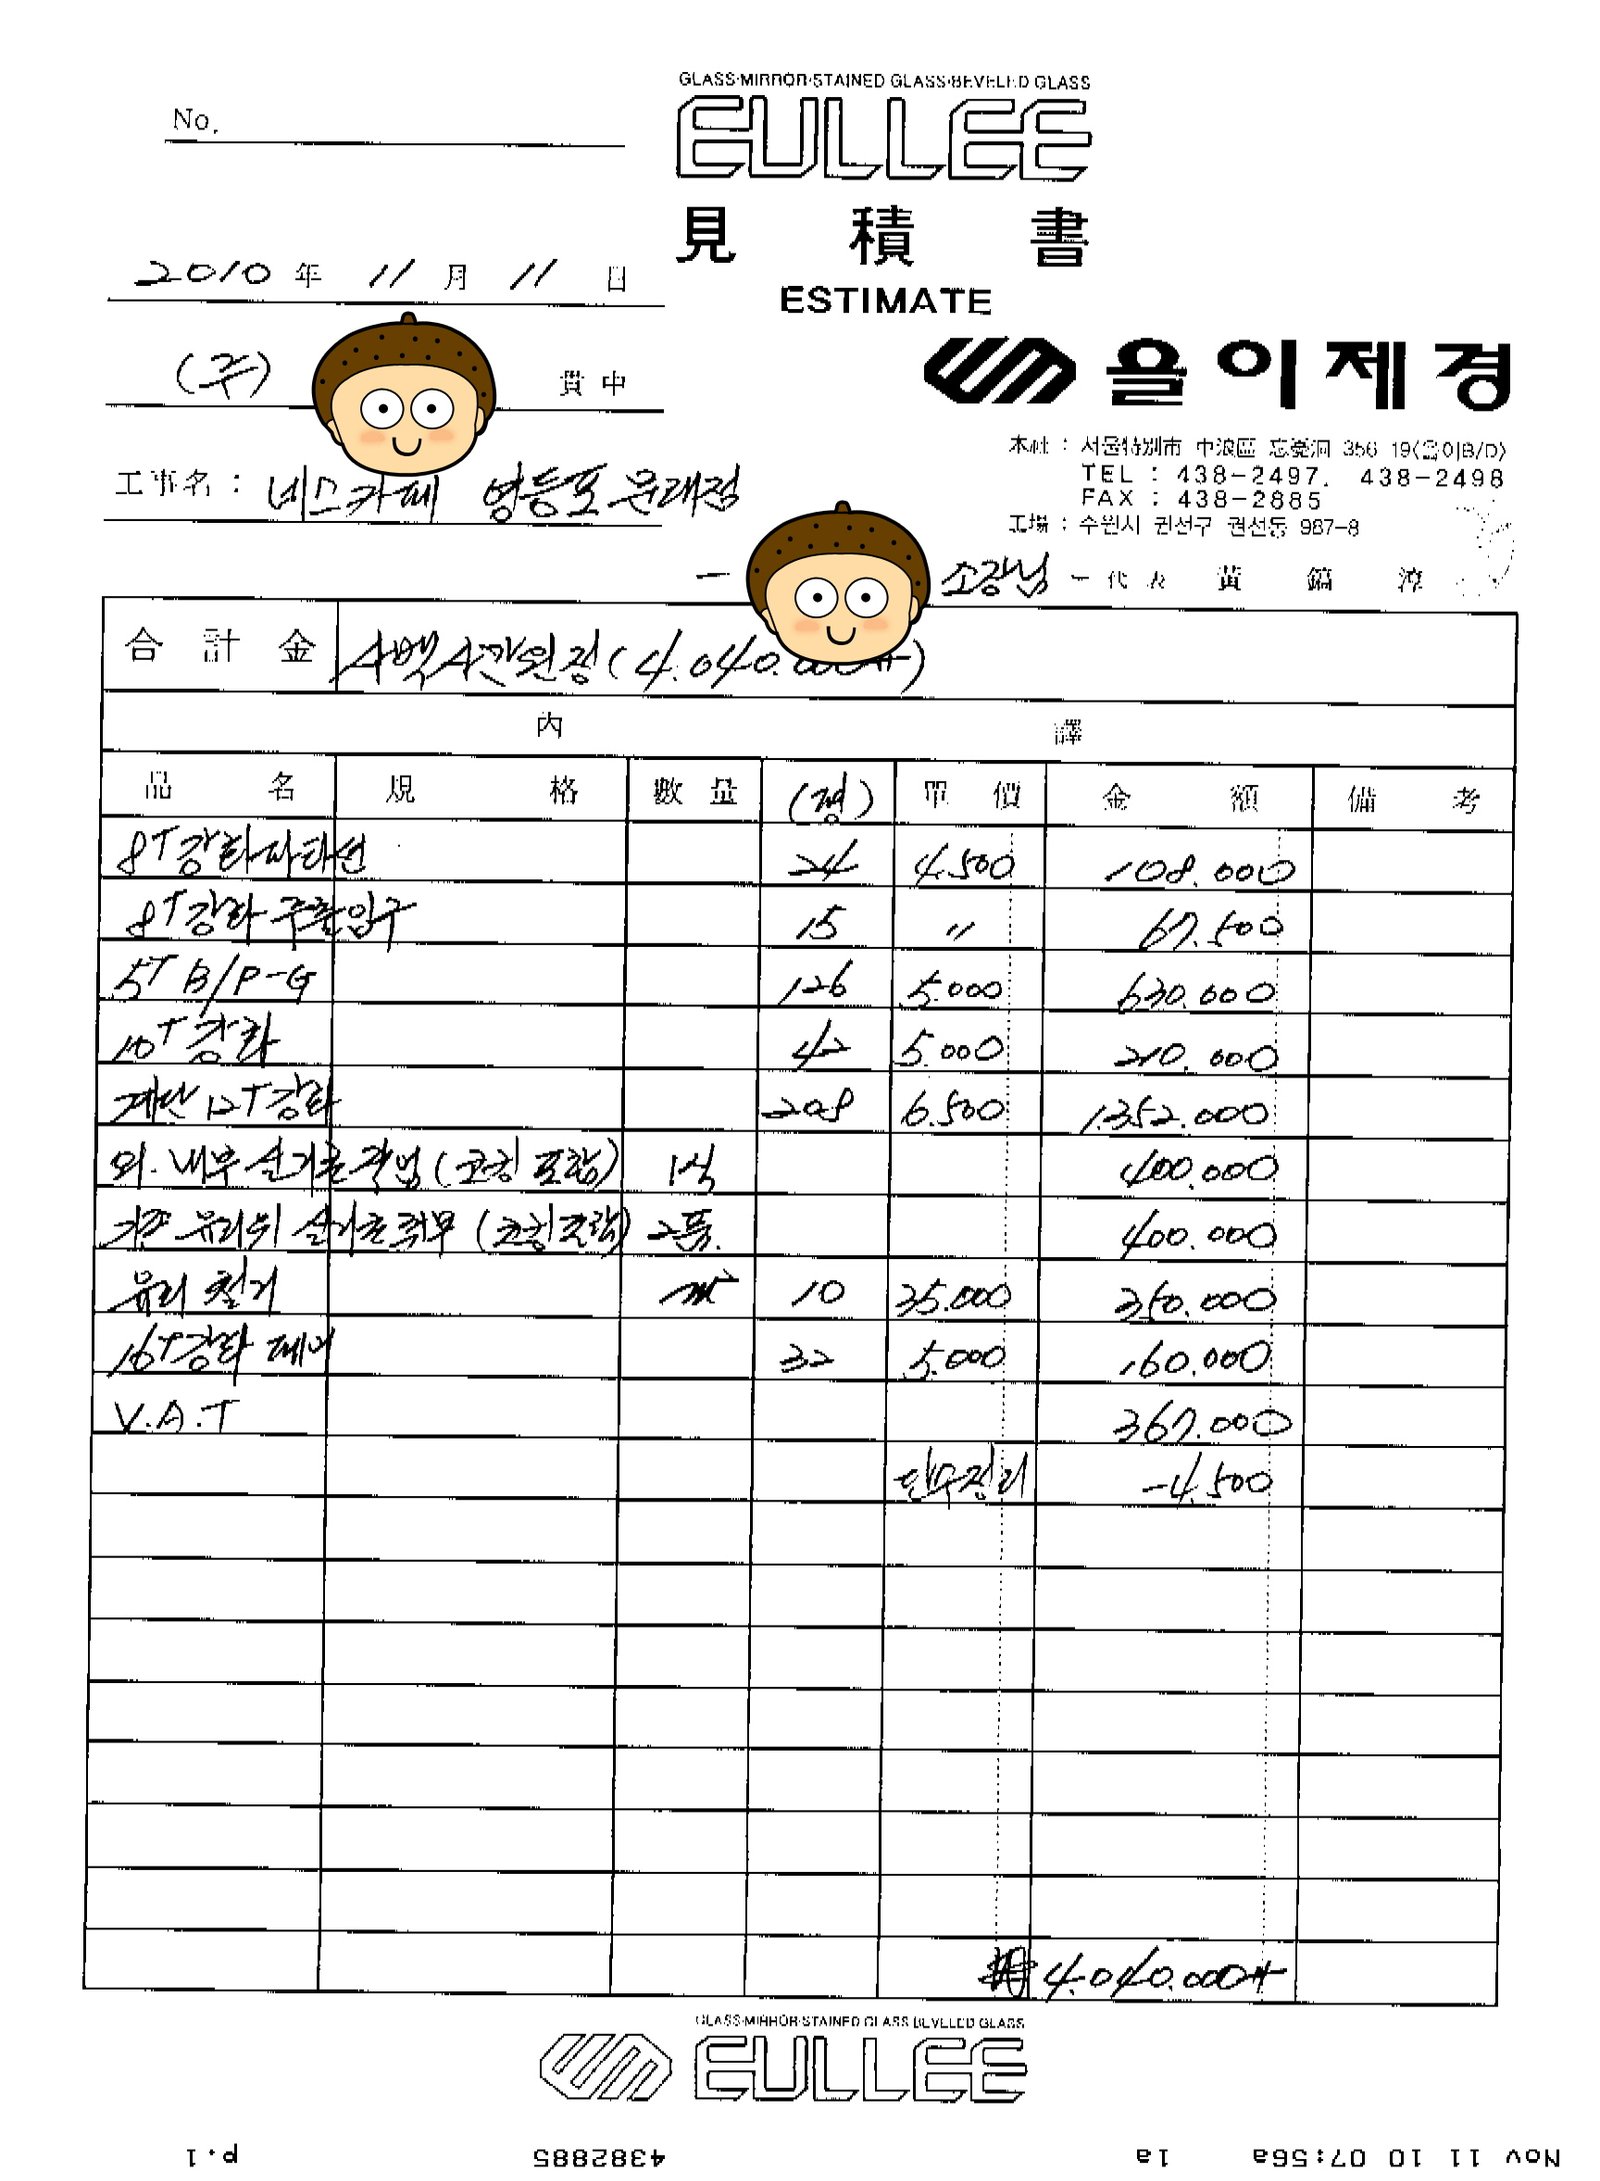 GLASS·MIRROR·STAINED GLASS·BEVELED GLASS
EULLEE
No.
見積書
ESTIMATE
2010 年 11 月 11 日
(주) 貴中
을이제경
本社 : 서울特別市 中浪區 忘憂洞 356-19(을이B/D)
TEL : 438-2497. 438-2498
FAX : 438-2885
工場 : 수원시 권선구 권선동 987-8
工事名 : 네스카페 영등포 문래점
- 소장님 - 代表 黃鎬淳
合計金 사백사만원정(4.040.000#)
內譯
品名 規格 數量 (평) 單價 金額 備考
8T강화파티션 24 4.500 108.000
8T강화 주출입구 15 〃 67.500
5T B/P-G 126 5.000 630.000
10T강화 42 5.000 210.000
계단 12T강화 208 6.500 1.352.000
외.내부 실리콘작업(코킹 포함) 1식 400.000
기존 유리위 실리콘 (코킹포함) 2품. 400.000
유리 철거 m² 10 35.000 350.000
16T강화 32 5.000 160.000
V.A.T 367.000
단수정리 -4.500
₩4.040.000#
GLASS·MIRROR·STAINED GLASS·BEVELED GLASS
EULLEE
Nov 11 10 07:56a 1a 4382885 p.1